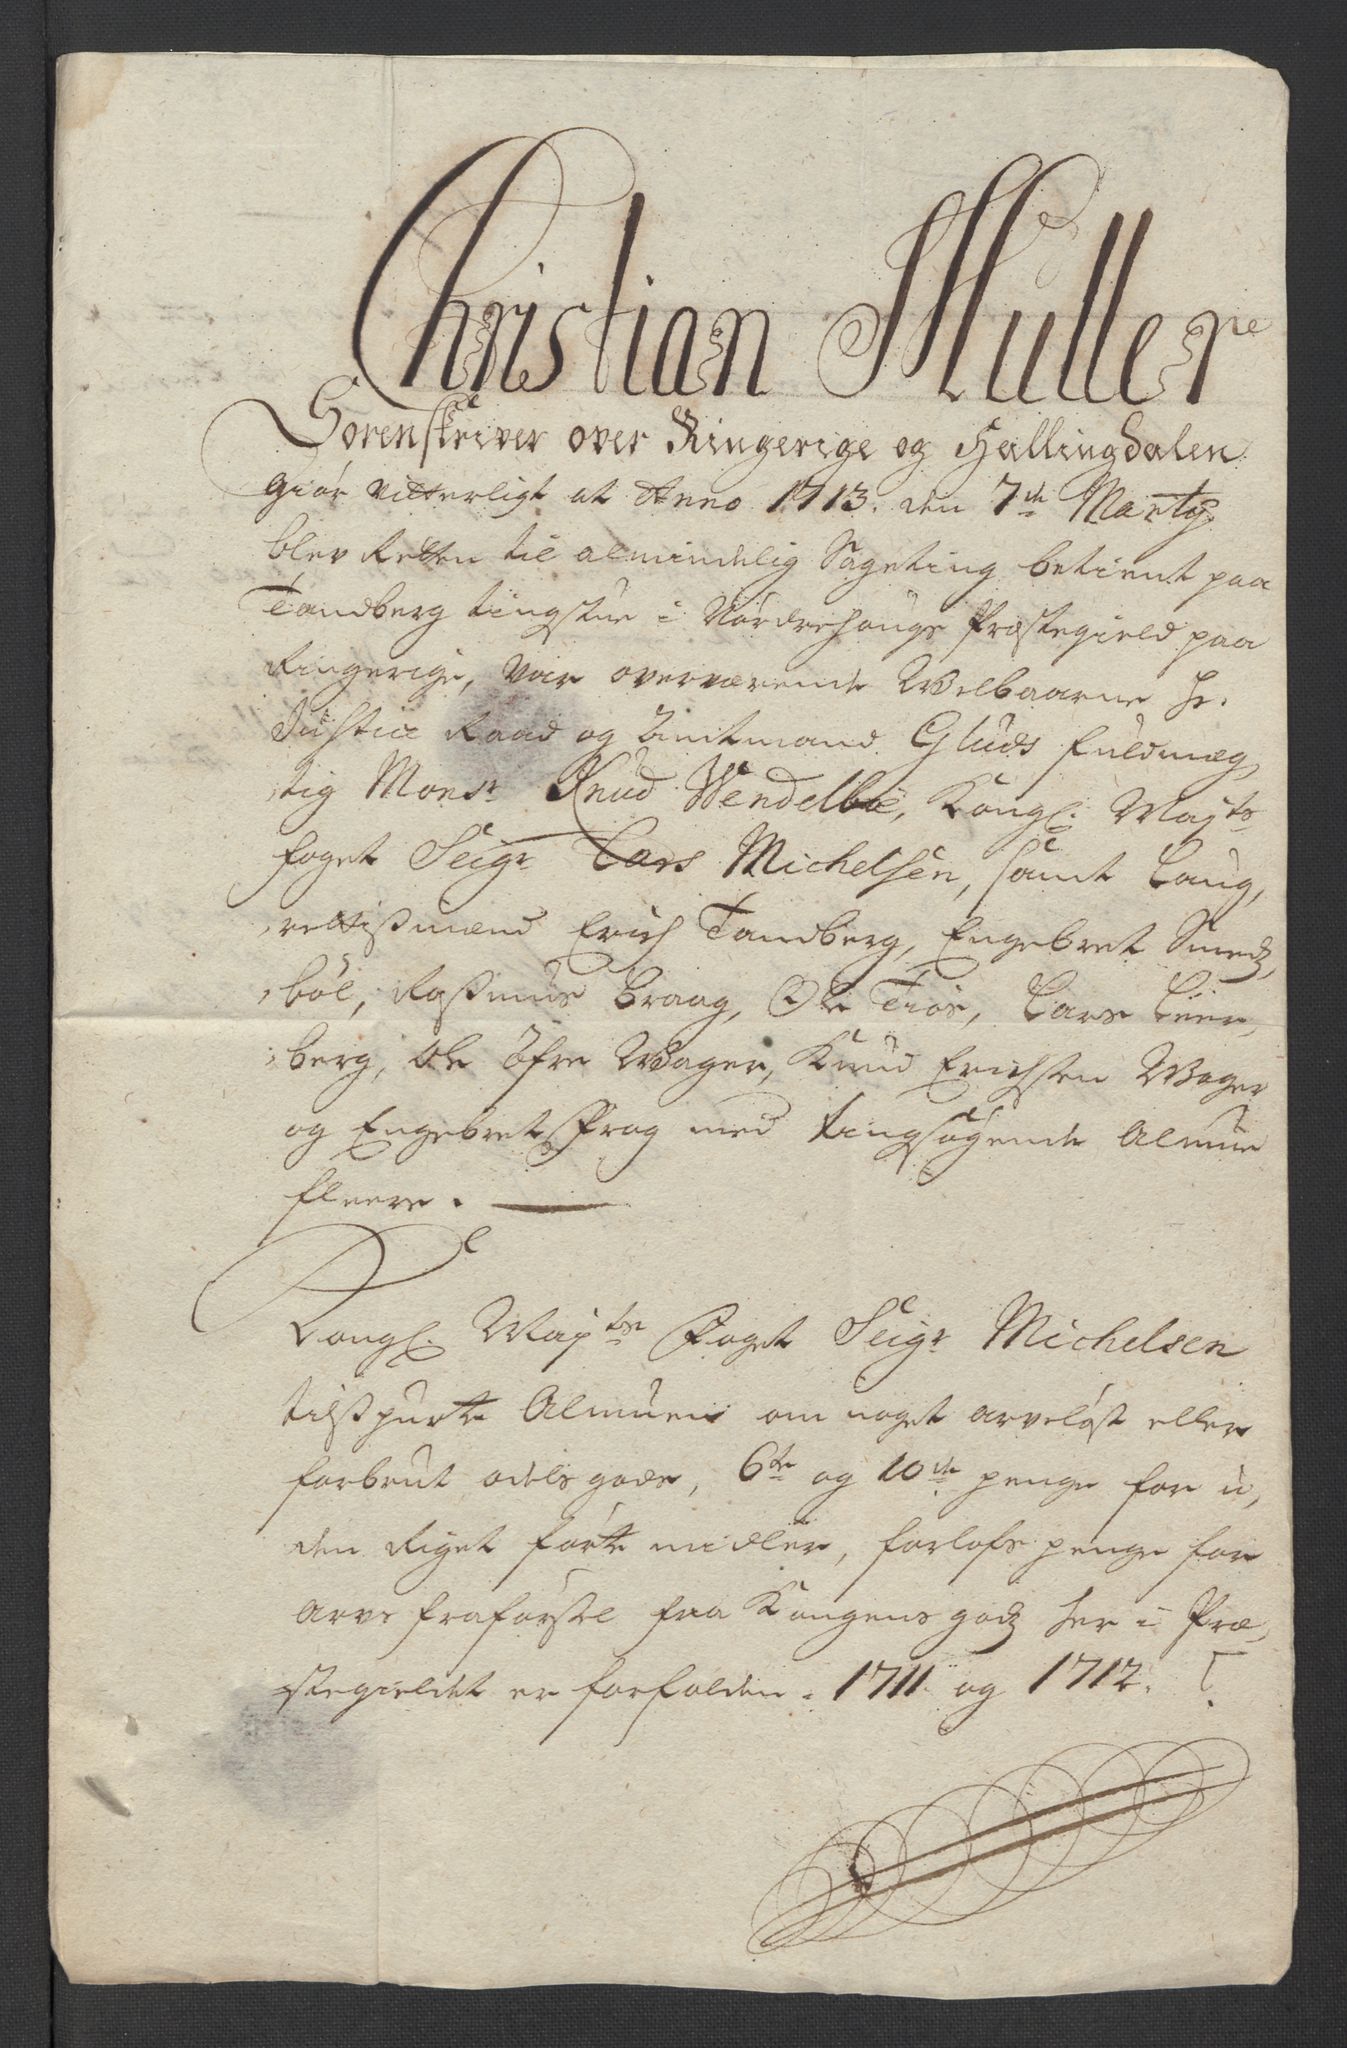 Christian Muller
Sorenskriver over Ringerige og Hallingdalen
Giør Vitterligt at Anno 1713. den 7de Marty
blev Retten til almindelig Sageting betient paa
Tandberg tingstue i Nordrehougs Præstegield paa
Ringerige, var overværende Welbaarne Hr.
Justice Raad og Amtmand Gluds fuldmæg,
tig Monsr Knud Wendelboe, Kongl. Mayts
foget Seigr Lars Michelsen, samt Laug,
rettismænd Erich Tandberg, Engebret Smedz,
bøl, Rasmus Braag, Ole Tiøs, Lars Leer,
berg, Ole Øfre Wager, Knud Erichsen Wager
og Engebret Frog med tingsøgende Almue
fleere.
Kongl. Mayts Foget Seigr Michelsen
tilspurte Almuen om noget arveløst eller
forbrut odels gods, 6te og 10de penge for u,
den Riget førte midler, forlofs penge for
arvs fraførsel fra Kongens godz her i Præ,
stegieldet er forfalden 1711 og 1712. ?